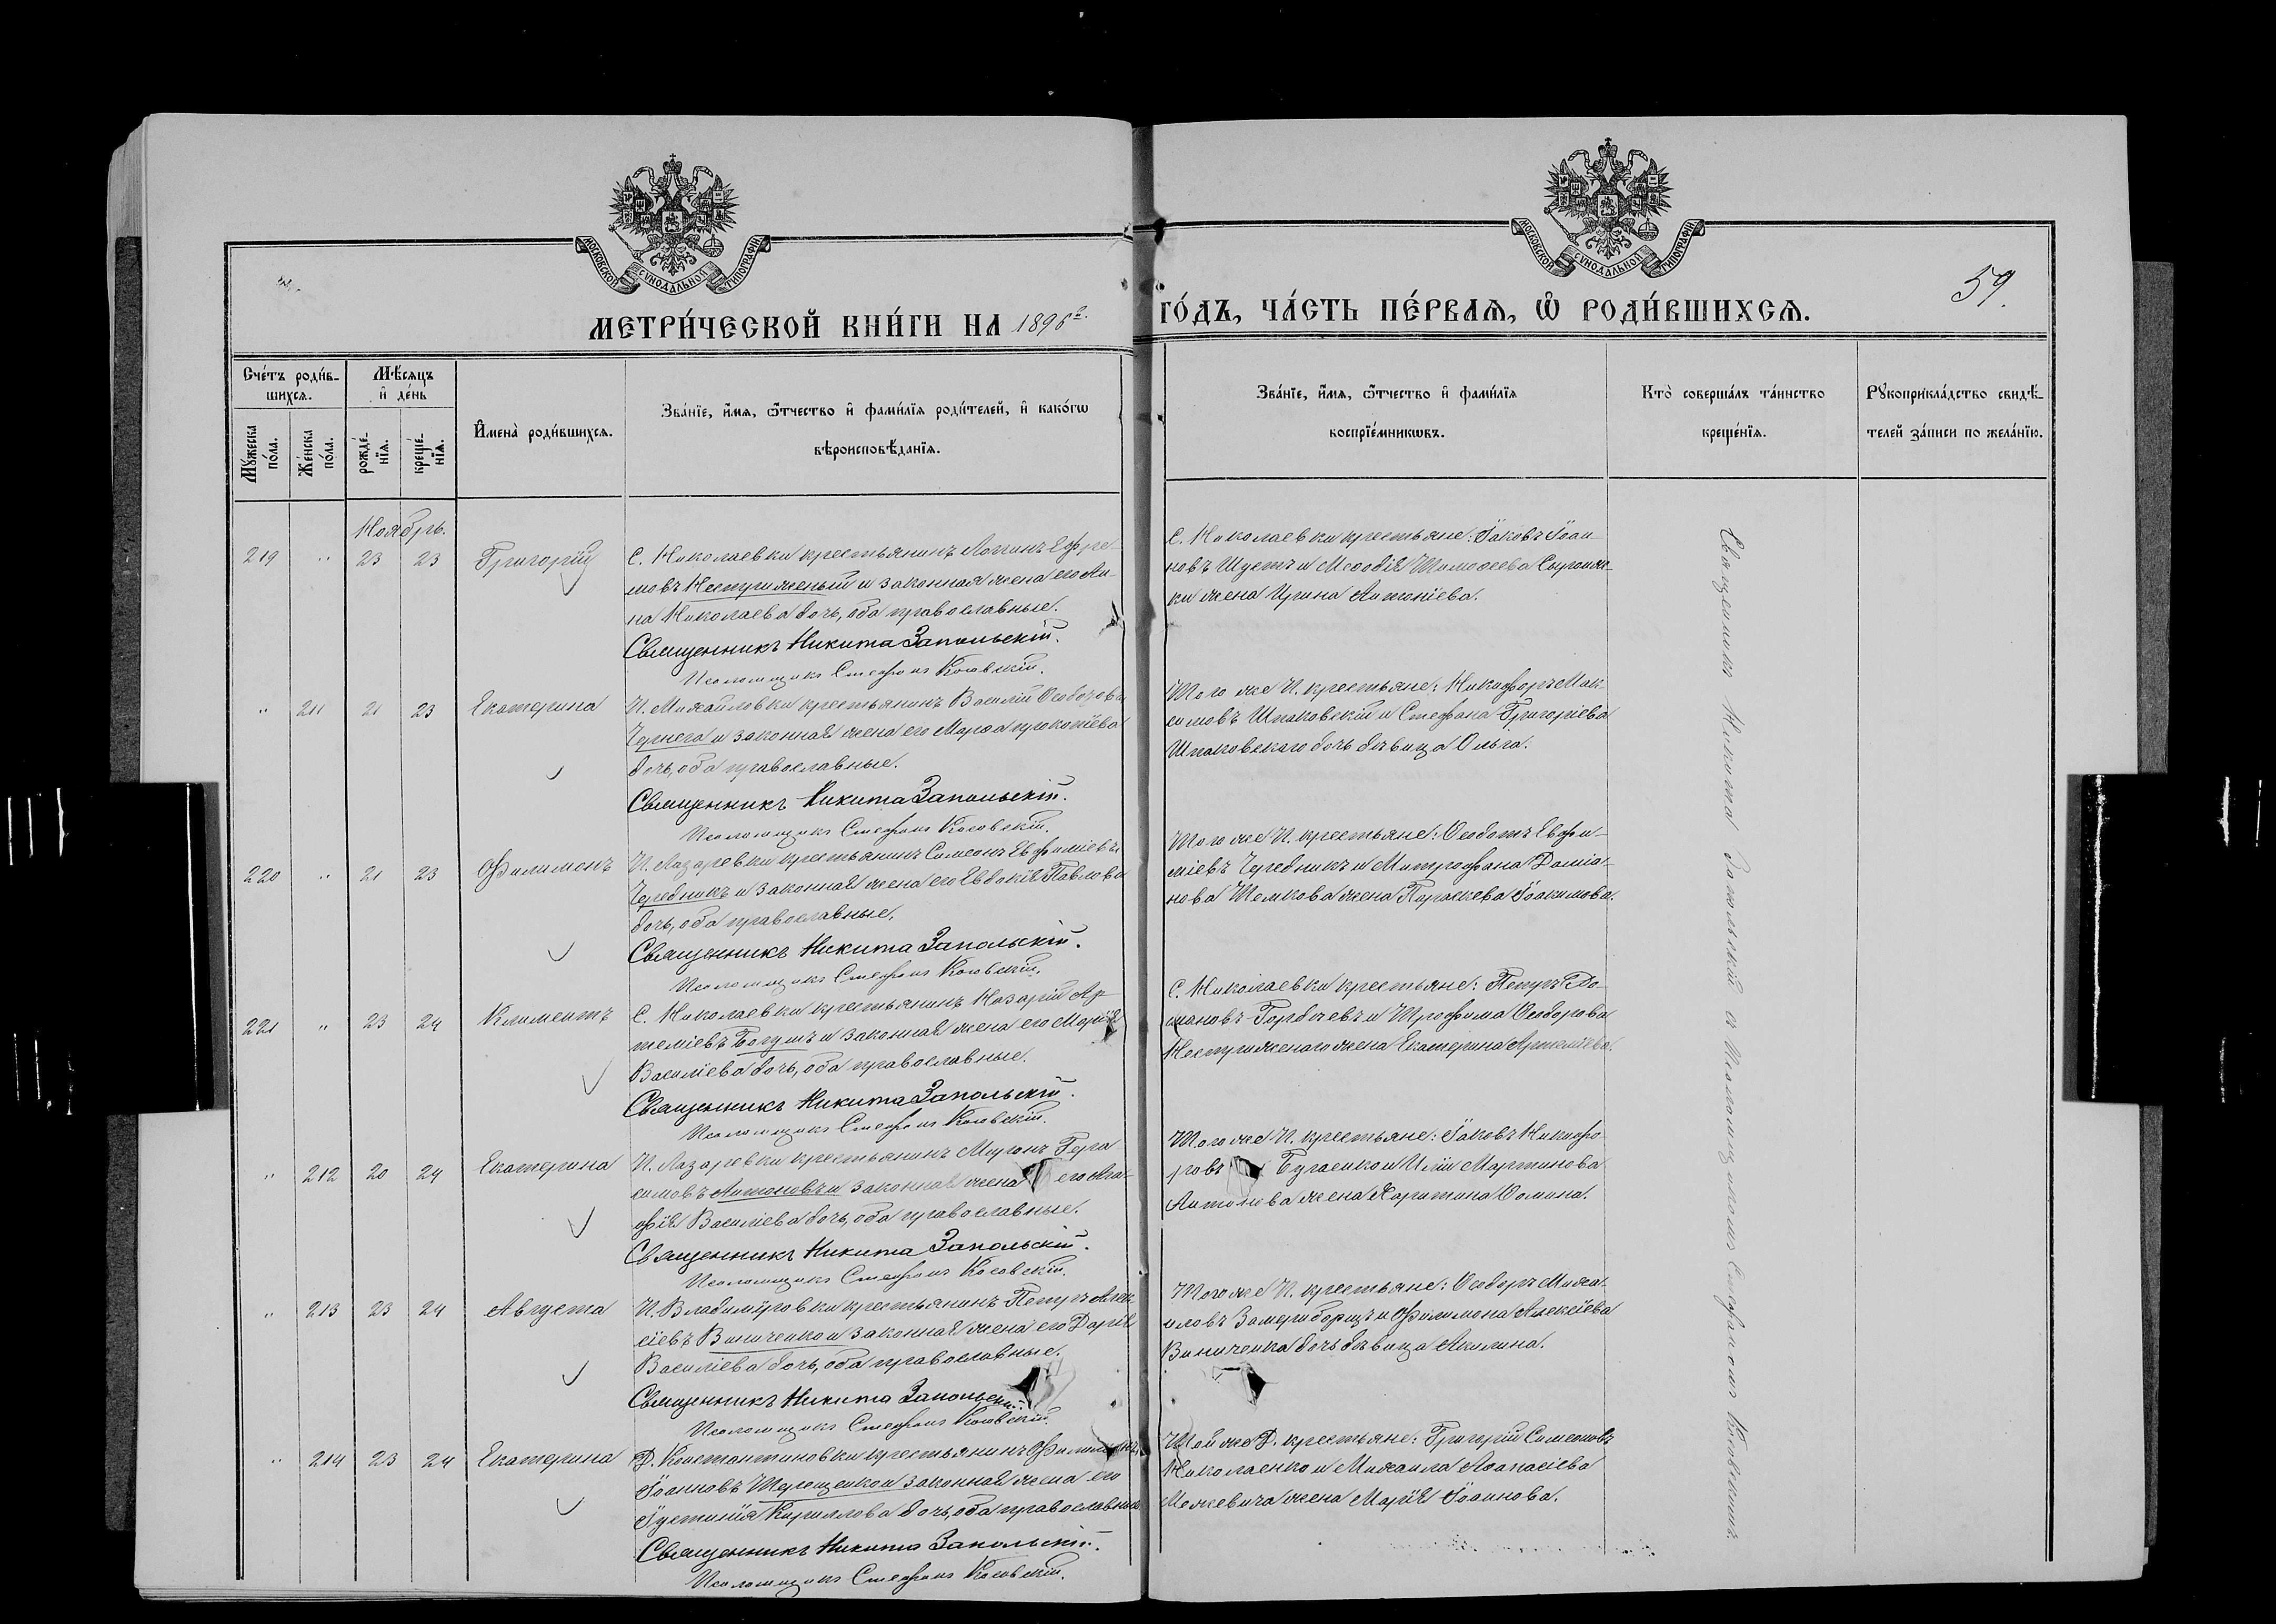 МОСКОВСКОЙ СУНОДАЛЬНОЙ ТИПОГРАФІИ
МОСКОВСКОЙ СУНОДАЛЬНОЙ ТИПОГРАФІИ
59.
МЕТРИ́ЧЕСКОЙ КНИ́ГИ НА 1896 г. ГО́ДЪ, ЧА́СТЬ ПЕ́РВАѦ, Ѡ҆ РОДИ́ВШИХСѦ.
Сче́тъ роди́в-
шихсѧ.
Мꙋ́жеска по́ла.
Же́нска по́ла.
Мѣ́сѧцъ
и҆ де́нь
рожде́-
нїѧ.
креще́-
нїѧ.
И҆мена̀ роди́вшихсѧ.
Зва́нїе, и҆́мѧ, ѻ҆́тчество и҆ фами́лїѧ роди́телей, и҆ како́гѡ
вѣроисповѣ́данїѧ.
Зва́нїе, и҆́мѧ, ѻ҆́тчество и҆ фами́лїѧ
воспрїе́мникѡвъ.
Кто̀ соверша́лъ та́инство
креще́нїѧ.
Рꙋкоприкла́дство свидѣ́-
телей за́писи по жела́нїю.
Ноябрь.
219 " 23 23 Григорій
С. Николаевки крестьянинъ Логинъ Ефре-
мовъ Нестриженый и законная жена его Ан-
на Николаева дочь, оба православные.
Священникъ Никита Запольскій.
Псаломщикъ Стефанъ Косовскій.
С. Николаевки крестьяне: Іаковъ Іоан-
новъ Шустъ и Меѳодія Тимоѳеева Сыроиж-
ки жена Ирина Антоніева.
" 211 21 23 Екатерина
П. Михайловки крестьянинъ Василій Ѳеодотовъ
Чернега и законная жена его Марѳа Прокопіева
дочь, оба православные.
Священникъ Никита Запольскій.
Псаломщикъ Стефанъ Косовскій.
Того же П. крестьяне: Никифоръ Мак-
симовъ Шпаковскій и Стефана Григоріева
Шпаковскаго дочь дѣвица Ольга.
220 " 21 23 Филимонъ
П. Лазаревки крестьянинъ Симеонъ Евфиміевъ
Чередникъ и законная жена его Евдокія Павлова
дочь, оба православные.
Священникъ Никита Запольскій.
Псаломщикъ Стефанъ Косовскій.
Того же П. крестьяне: Ѳеодотъ Евфи-
міевъ Чередникъ и Митрофана Даміа-
нова жена Параскева Іоакимова.
221 " 23 24 Климентъ
С. Николаевки крестьянинъ Назарій Ар-
теміевъ Богушъ и законная жена его Марія
Василіева дочь, оба православные.
Священникъ Никита Запольскій.
Псаломщикъ Стефанъ Косовскій.
С. Николаевки крестьяне: Петръ
Горбачевъ и Трофима Ѳеодорова
Нестриженаго жена Екатерина Артеміева.
" 212 20 24 Екатерина
П. Лазаревки крестьянинъ Миронъ Гера-
симовъ Антоновъ и законная жена его Ага-
фія Василіева дочь, оба православные.
Священникъ Никита Запольскій.
Псаломщикъ Стефанъ Косовскій.
Того же П. крестьяне: Іаковъ Никифо-
ровъ Бугаенко и Иліи Мартинова
Антонова жена Харитина Ѳомина.
" 213 23 24 Августа
П. Владиміровки крестьянинъ Петръ Алек-
сіевъ Виниченко и законная жена его Дарія
Василіева дочь, оба православные.
Священникъ Никита Запольскій.
Псаломщикъ Стефанъ Косовскій.
Того же П. крестьяне: Ѳеодоръ Миха-
иловъ Замериборщъ и Филимона Алексіева
Виниченка дочь дѣвица Акилина.
" 214 23 24 Екатерина
Д. Константиновки крестьянинъ Филимонъ
Іоанновъ Терещенко и законная жена его
Іустинія Кириллова дочь, оба православные.
Священникъ Никита Запольскій.
Псаломщикъ Стефанъ Косовскій.
Той же Д. крестьяне: Григорій Симеоновъ
Николаенко и Михаила Аѳанасіева
жена Марія Іоаннова.
Священникъ Никита Запольскій съ Псаломщикомъ Стефаномъ Косовскимъ.